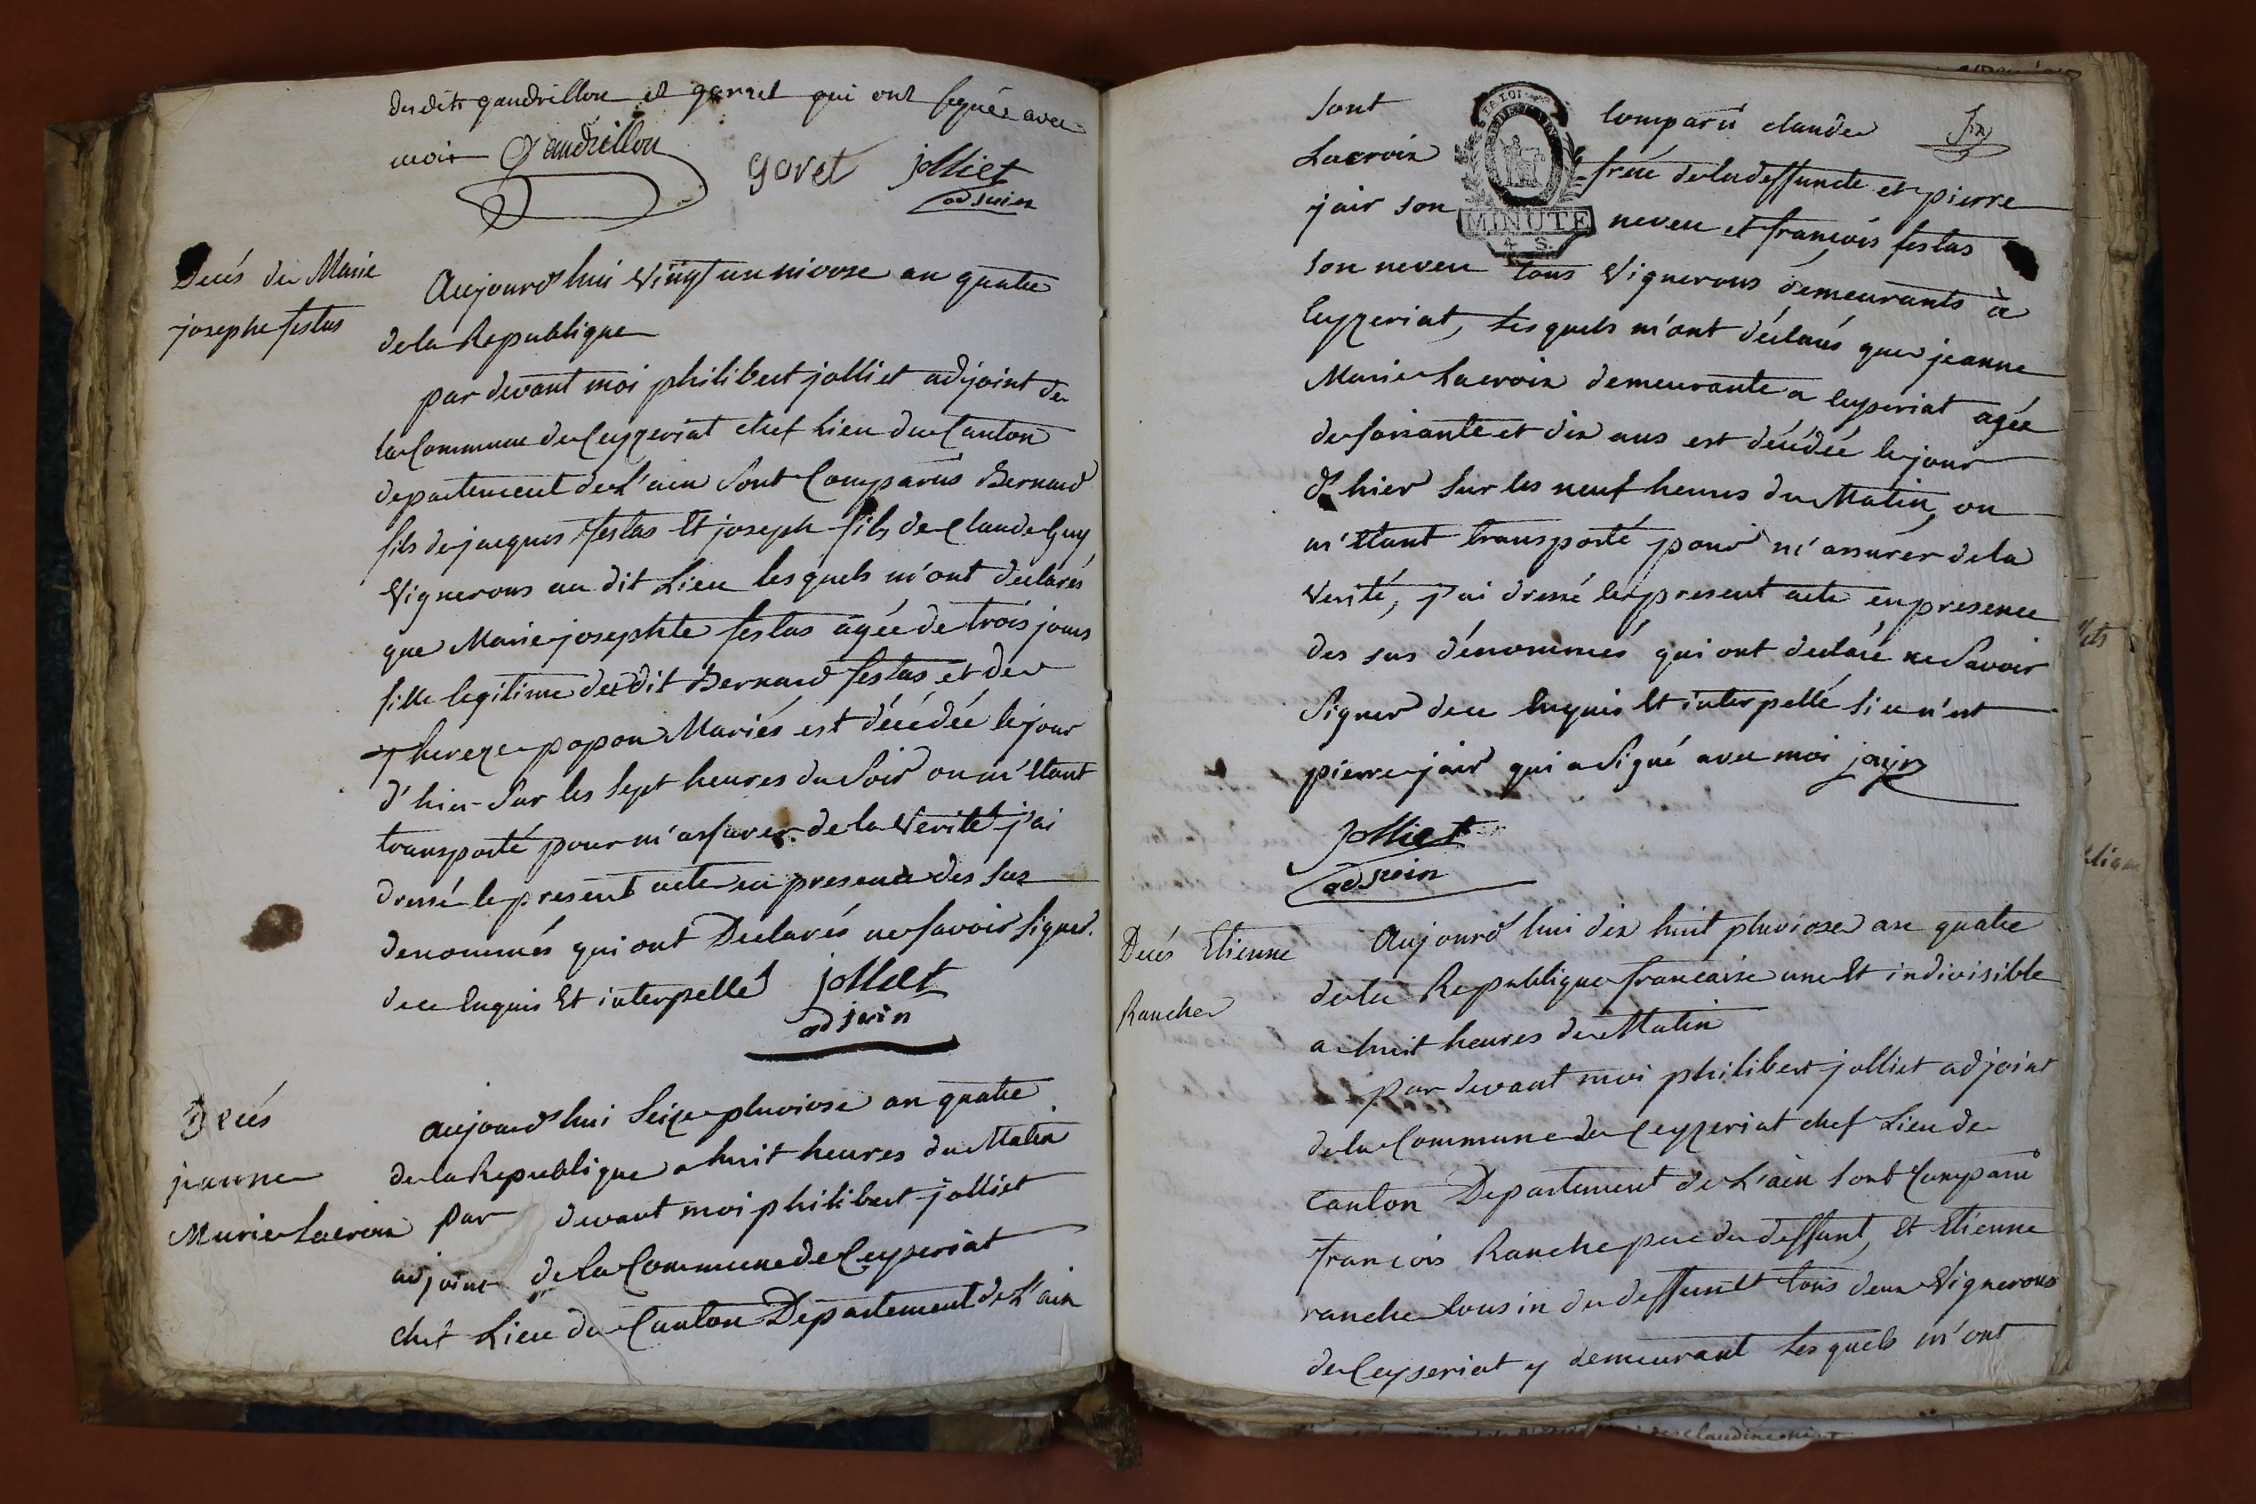 desdits gaudrillon et garret qui ont signés avec
moi Gaudrillon goret jolliet
adjoin
Decés de Marie
josephe festas
Aujourd'hui Vingt un nivose an quatre
de la Republique
par devant moi philibert jolliet adjoint de
la Commune de Ceyzeriat chef Lieu du Canton
departement de L'ain Sont Comparus Bernard
fils de jacques festas Et joseph fils de Claude Guy
Vignerons au dit Lieu lesquels m'ont declarés
que Marie josephte festas agée de trois jours
fille legitime du dit Bernard festas et de
Thereze popon Mariés est décédée le jour
d'hier Sur les Sept heures du Soir ou m'étant
transporté pour m'assurer de la Verité j'ai
dressé le present acte en presence des sus
denommés qui ont Declarés ne savoir signer
de ce Enquis Et interpellé jolliet
adjoin
Decés
jeanne
Marie Lacroix
aujourd'hui Seize pluviose an quatre
de la Republique a huit heures du Matin
par devant moi philibert jolliet
adjoint de la Commune de Ceyseriat
chef Lieu de Canton Departement de L'ain
Sont comparu claude
Lacroix frere de la deffuncte et pierre
jair son neveu et françois festas
son neveu tous Vignerons demeurants à
Ceyzeriat, Lesquels m'ont déclarés que jeanne
Marie Lacroix demeurante a ceyseriat agée
de soixante et dix ans est décédée le jour
d'hier Sur les neuf heures du Matin, ou
m'étant transporté pour m'assurer de la
Verité, j'ai dressé le present acte en presence
des sus dénommés qui ont declaré ne Savoir
Signer de ce Enquis Et interpellé Si ce n'est
pierre jair qui a Signé avec moi jair
jolliet
adjoin
STA LOI
MINUTE
4 S.
Decés Etienne
Ranche
Aujourd'hui dix huit pluviose an quatre
de la Republique francaise une Et indivisible
a huit heures du Matin
par devant moi philibert jolliet adjoint
de la Commune de Ceyzeriat chef Lieu de
Canton Departement de L'ain Sont Comparu
françois Ranche pere du deffunt, Et Etienne
ranche Cousin du deffunt tous deux Vignerons
de Ceyseriat y demeurant Lesquels m'ont